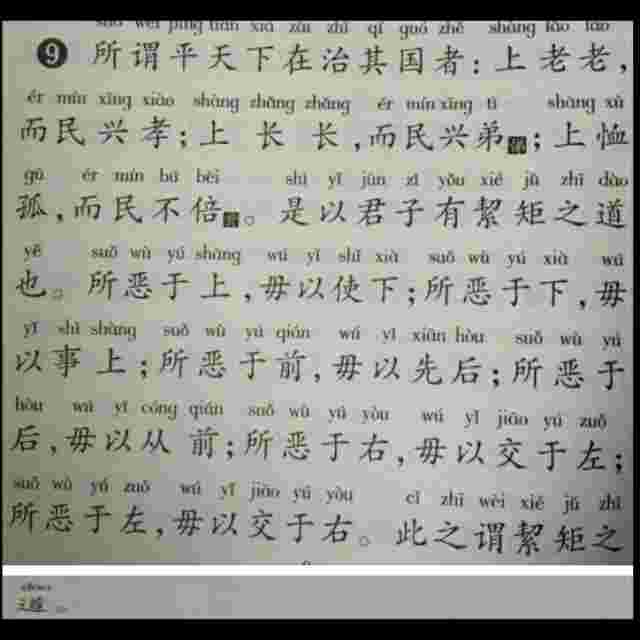 suǒ wèi píng tiān xià zài zhì qí guó zhě shàng lǎo lǎo
9 所谓平天下在治其国者：上老老，
ér mín xīng xiào shàng zhǎng zhǎng ér mín xīng tì shàng xù
而民兴孝；上长长，而民兴弟；上恤
gū ér mín bú bèi shì yǐ jūn zǐ yǒu xié jǔ zhī dào
孤，而民不倍。是以君子有絜矩之道
yě suǒ wù yú shàng wú yǐ shǐ xià suǒ wù yú xià wú
也。所恶于上，毋以使下；所恶于下，毋
yǐ shì shàng suǒ wù yú qián wú yǐ xiān hòu suǒ wù yú
以事上；所恶于前，毋以先后；所恶于
hòu wú yǐ cóng qián suǒ wù yú yòu wú yǐ jiāo yú zuǒ
后，毋以从前；所恶于右，毋以交于左；
suǒ wù yú zuǒ wú yǐ jiāo yú yòu cǐ zhī wèi xié jǔ zhī
所恶于左，毋以交于右。此之谓絜矩之